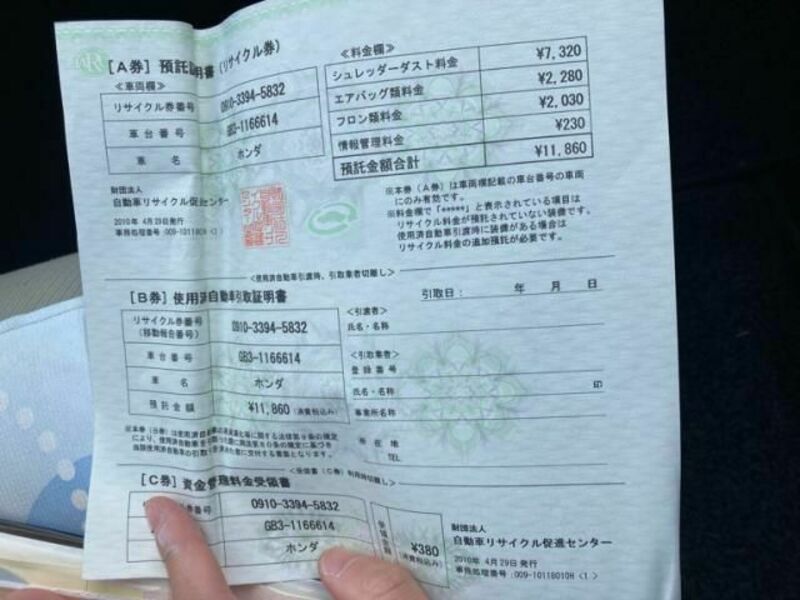 [A券] 預託証明書 (リサイクル券)
≪車両欄≫
リサイクル券番号 0910-3394-5832
車台番号 GB3-1166614
車名 ホンダ
≪料金欄≫
シュレッダーダスト料金 ¥7,320
エアバッグ類料金 ¥2,280
フロン類料金 ¥2,030
情報管理料金 ¥230
預託金額合計 ¥11,860
財団法人
自動車リサイクル促進センター
2010年 4月29日発行
事務処理番号:009-10118010H <1>
※本券(A券)は車両欄記載の車台番号の車両
にのみ有効です。
※料金欄で「*****」と表示されている項目は
リサイクル料金が預託されていない装備です。
使用済自動車引渡時に装備がある場合は
リサイクル料金の追加預託が必要です。
<使用済自動車引渡時、引取業者切離し>
[B券] 使用済自動車引取証明書
引取日: 年 月 日
リサイクル券番号
(移動報告番号) 0910-3394-5832
車台番号 GB3-1166614
車名 ホンダ
預託金額 ¥11,860 (消費税込み)
<引渡者>
氏名・名称
<引取業者>
登録番号
氏名・名称 印
事業所名称
所在地
TEL
<受領書(C券)利用時切離し>
[C券] 資金管理料金受領書
0910-3394-5832
GB3-1166614
ホンダ
¥380
(消費税込み)
財団法人
自動車リサイクル促進センター
2010年 4月29日発行
事務処理番号:009-10118010H <1>